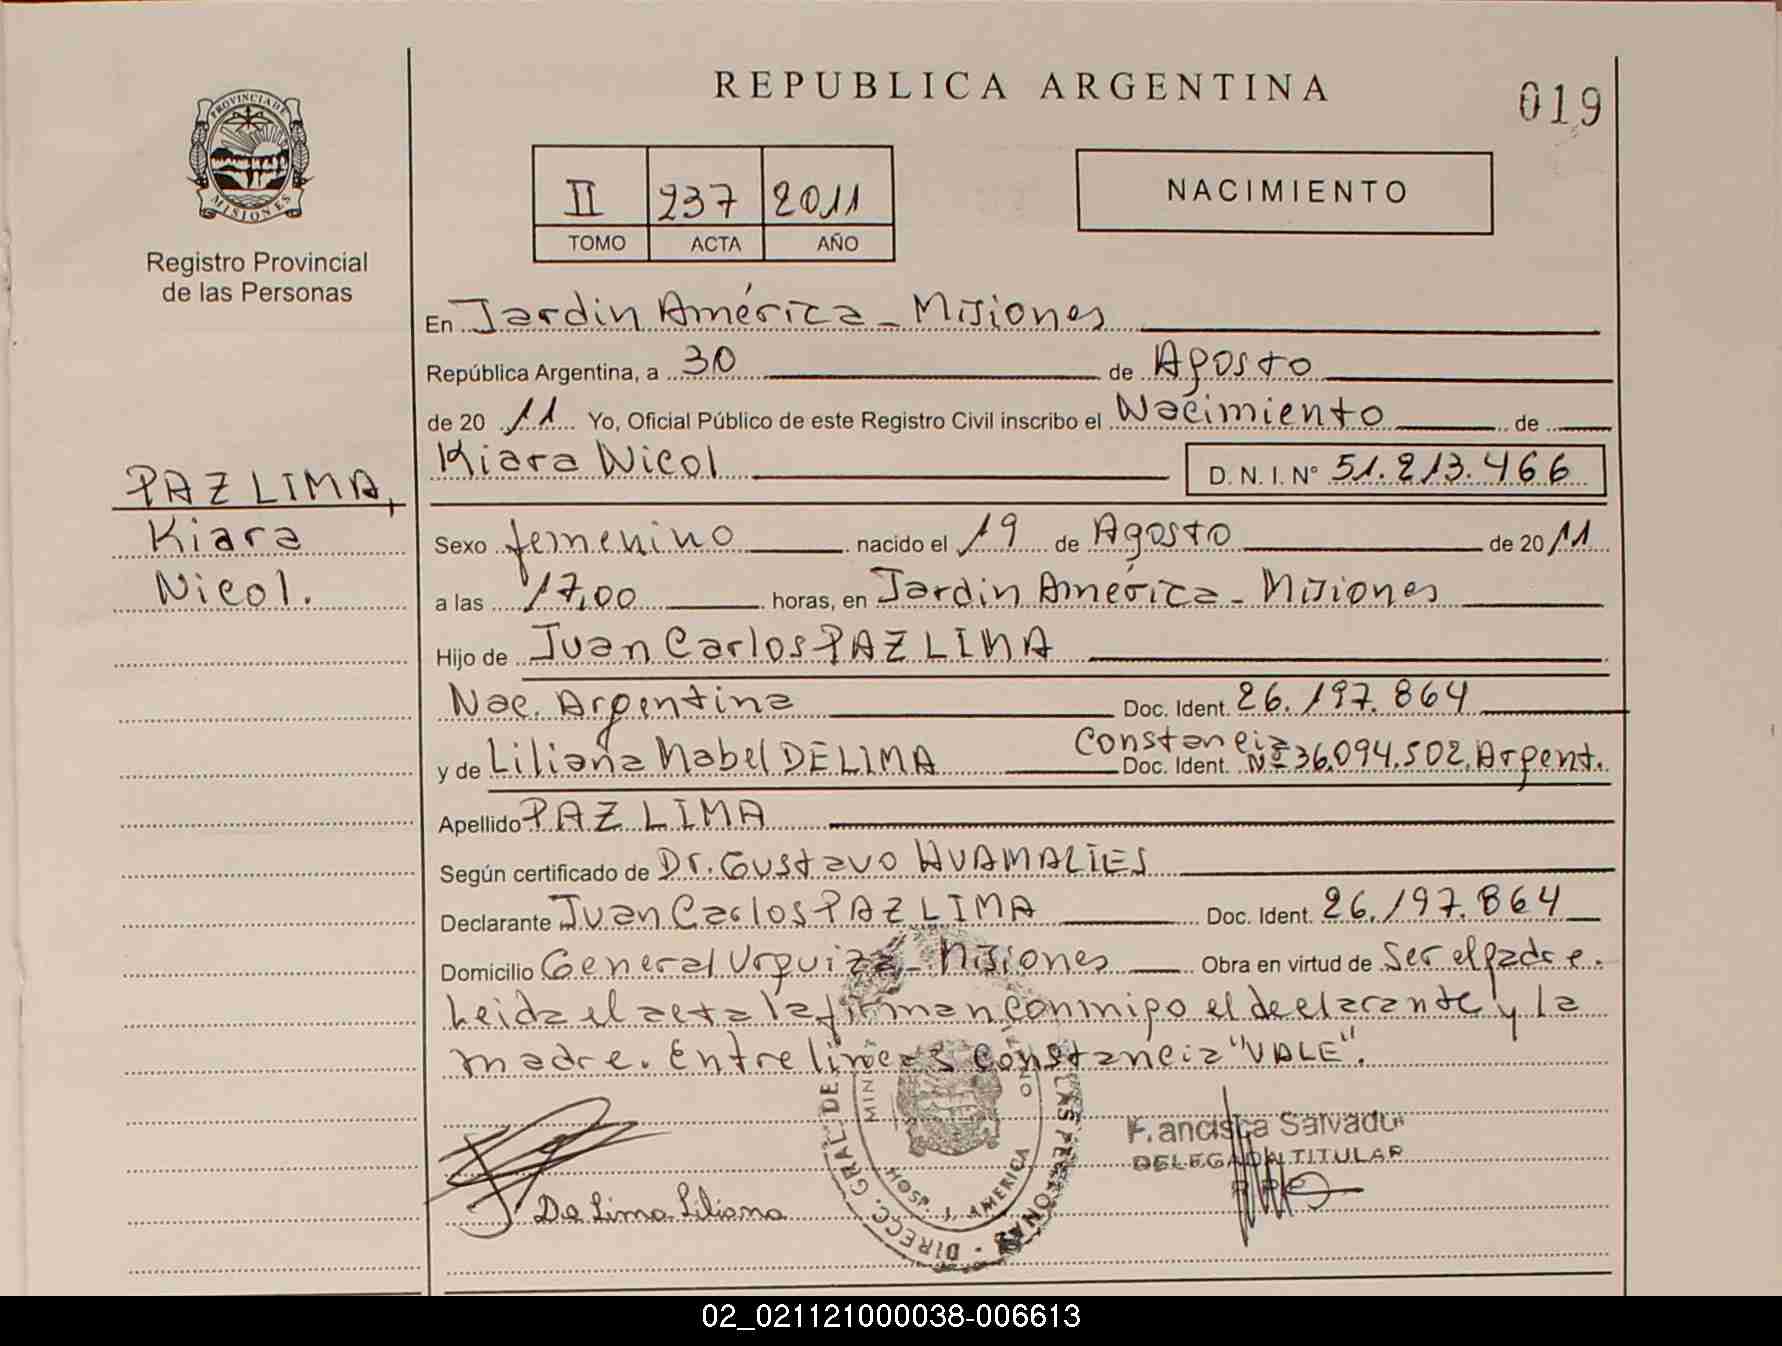 REPUBLICA ARGENTINA
019
PROVINCIA DE
MISIONES
Registro Provincial
de las Personas
II 237 2011
TOMO ACTA AÑO
NACIMIENTO
En Jardin América - Misiones
República Argentina, a 30 de Agosto
de 20 11 Yo, Oficial Público de este Registro Civil inscribo el Nacimiento de
Kiara Nicol D. N. I. N° 51.213.466
PAZ LIMA,
Kiara
Nicol.
Sexo femenino nacido el 19 de Agosto de 20 11
a las 17,00 horas, en Jardin América - Misiones
Hijo de Juan Carlos PAZ LIMA
Nac. Argentina Doc. Ident. 26.197.864
y de Liliana Mabel DE LIMA Constancia Doc. Ident. Nº 36.094.502. Argent.
Apellido PAZ LIMA
Según certificado de Dr. Gustavo HUAMALIES
Declarante Juan Carlos PAZ LIMA Doc. Ident. 26.197.864
Domicilio General Urquiza - Misiones Obra en virtud de Ser el padre.
Leida el acta la firman conmigo el declarante y la
madre. Entre lineas constancia "VALE".
De Lima Liliana
DIRECC. GRAL DE LAS PERSONAS
HOSP. J. AMERICA
Francisca Salvador
DELEGADA TITULAR
02_021121000038-006613